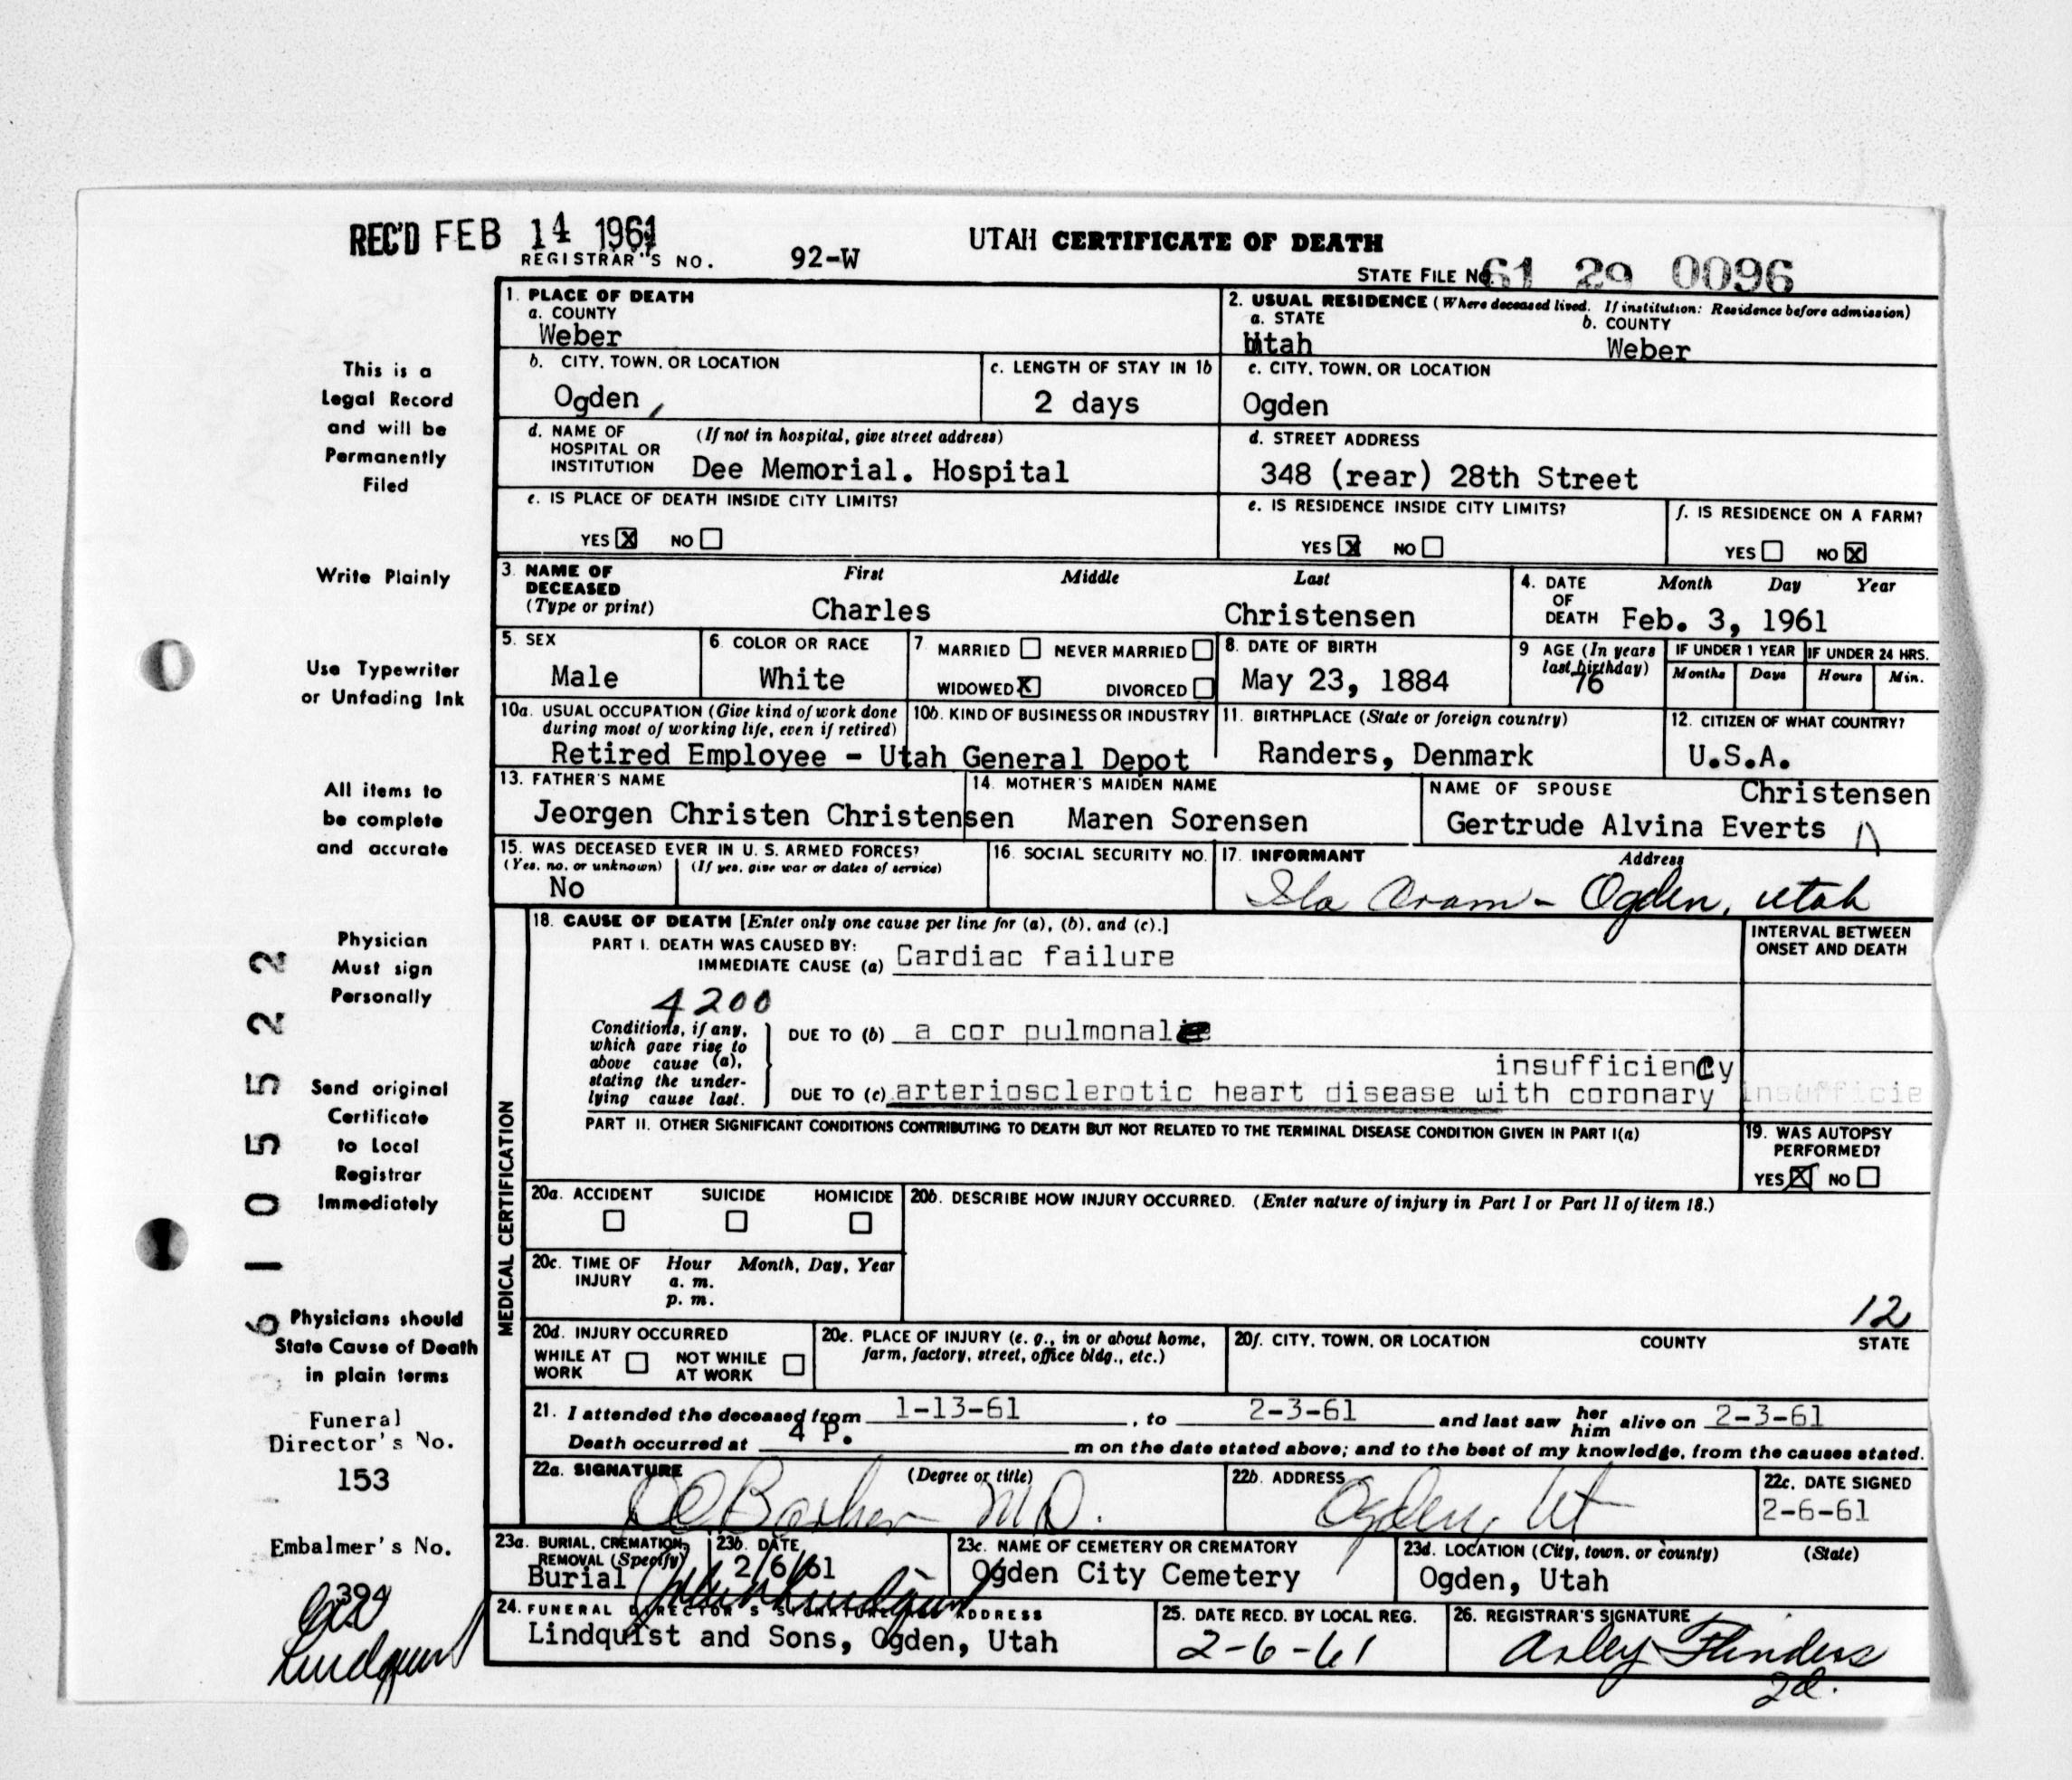 REC'D FEB 14 1961
UTAH CERTIFICATE OF DEATH
REGISTRAR'S NO. 92-W
STATE FILE NO 61 29 0096
1. PLACE OF DEATH
a. COUNTY
Weber
2. USUAL RESIDENCE (Where deceased lived. If institution: Residence before admission)
a. STATE
b. COUNTY
Utah
Weber
b. CITY, TOWN, OR LOCATION
Ogden,
c. LENGTH OF STAY IN 1b
2 days
c. CITY, TOWN, OR LOCATION
Ogden
d. NAME OF HOSPITAL OR INSTITUTION
(If not in hospital, give street address)
Dee Memorial. Hospital
d. STREET ADDRESS
348 (rear) 28th Street
e. IS PLACE OF DEATH INSIDE CITY LIMITS?
YES X NO
e. IS RESIDENCE INSIDE CITY LIMITS?
YES X NO
f. IS RESIDENCE ON A FARM?
YES NO X
3. NAME OF DECEASED
(Type or print)
First Middle Last
Charles Christensen
4. DATE OF DEATH
Month Day Year
Feb. 3, 1961
5. SEX
Male
6. COLOR OR RACE
White
7. MARRIED NEVER MARRIED
WIDOWED X DIVORCED
8. DATE OF BIRTH
May 23, 1884
9 AGE (In years last birthday)
76
IF UNDER 1 YEAR
Months Days
IF UNDER 24 HRS.
Hours Min.
10a. USUAL OCCUPATION (Give kind of work done during most of working life, even if retired)
10b. KIND OF BUSINESS OR INDUSTRY
Retired Employee - Utah General Depot
11. BIRTHPLACE (State or foreign country)
Randers, Denmark
12. CITIZEN OF WHAT COUNTRY?
U.S.A.
13. FATHER'S NAME
Jeorgen Christen Christensen
14. MOTHER'S MAIDEN NAME
Maren Sorensen
NAME OF SPOUSE
Christensen
Gertrude Alvina Everts
15. WAS DECEASED EVER IN U. S. ARMED FORCES?
(Yes, no, or unknown) (If yes, give war or dates of service)
No
16. SOCIAL SECURITY NO.
17. INFORMANT
Address
Ila Oram - Ogden, Utah
MEDICAL CERTIFICATION
18. CAUSE OF DEATH [Enter only one cause per line for (a), (b), and (c).]
PART I. DEATH WAS CAUSED BY:
IMMEDIATE CAUSE (a) Cardiac failure
INTERVAL BETWEEN ONSET AND DEATH
4200
Conditions, if any, which gave rise to above cause (a), stating the underlying cause last.
DUE TO (b) a cor pulmonale
insufficiency
DUE TO (c) arteriosclerotic heart disease with coronary insufficie
PART II. OTHER SIGNIFICANT CONDITIONS CONTRIBUTING TO DEATH BUT NOT RELATED TO THE TERMINAL DISEASE CONDITION GIVEN IN PART I(a)
19. WAS AUTOPSY PERFORMED?
YES X NO
20a. ACCIDENT SUICIDE HOMICIDE
20b. DESCRIBE HOW INJURY OCCURRED. (Enter nature of injury in Part I or Part II of item 18.)
20c. TIME OF INJURY
Hour Month, Day, Year
a. m.
p. m.
12
20d. INJURY OCCURRED
WHILE AT WORK NOT WHILE AT WORK
20e. PLACE OF INJURY (e. g., in or about home, farm, factory, street, office bldg., etc.)
20f. CITY, TOWN, OR LOCATION COUNTY STATE
21. I attended the deceased from 1-13-61, to 2-3-61 and last saw her him alive on 2-3-61
Death occurred at 4 P. m on the date stated above; and to the best of my knowledge, from the causes stated.
22a. SIGNATURE (Degree or title)
M.D.
22b. ADDRESS
Ogden, Ut
22c. DATE SIGNED
2-6-61
23a. BURIAL, CREMATION, REMOVAL (Specify)
Burial
23b. DATE
2/6/61
23c. NAME OF CEMETERY OR CREMATORY
Ogden City Cemetery
23d. LOCATION (City, town, or county) (State)
Ogden, Utah
24. FUNERAL DIRECTOR'S SIGNATURE ADDRESS
Lindquist and Sons, Ogden, Utah
25. DATE RECD. BY LOCAL REG.
2-6-61
26. REGISTRAR'S SIGNATURE
Arley Flinders
2d.
This is a
Legal Record
and will be
Permanently
Filed
Write Plainly
Use Typewriter
or Unfading Ink
All items to
be complete
and accurate
Physician
Must sign
Personally
Send original
Certificate
to Local
Registrar
Immediately
Physicians should
State Cause of Death
in plain terms
Funeral
Director's No.
153
Embalmer's No.
390
Lindquist
6105522